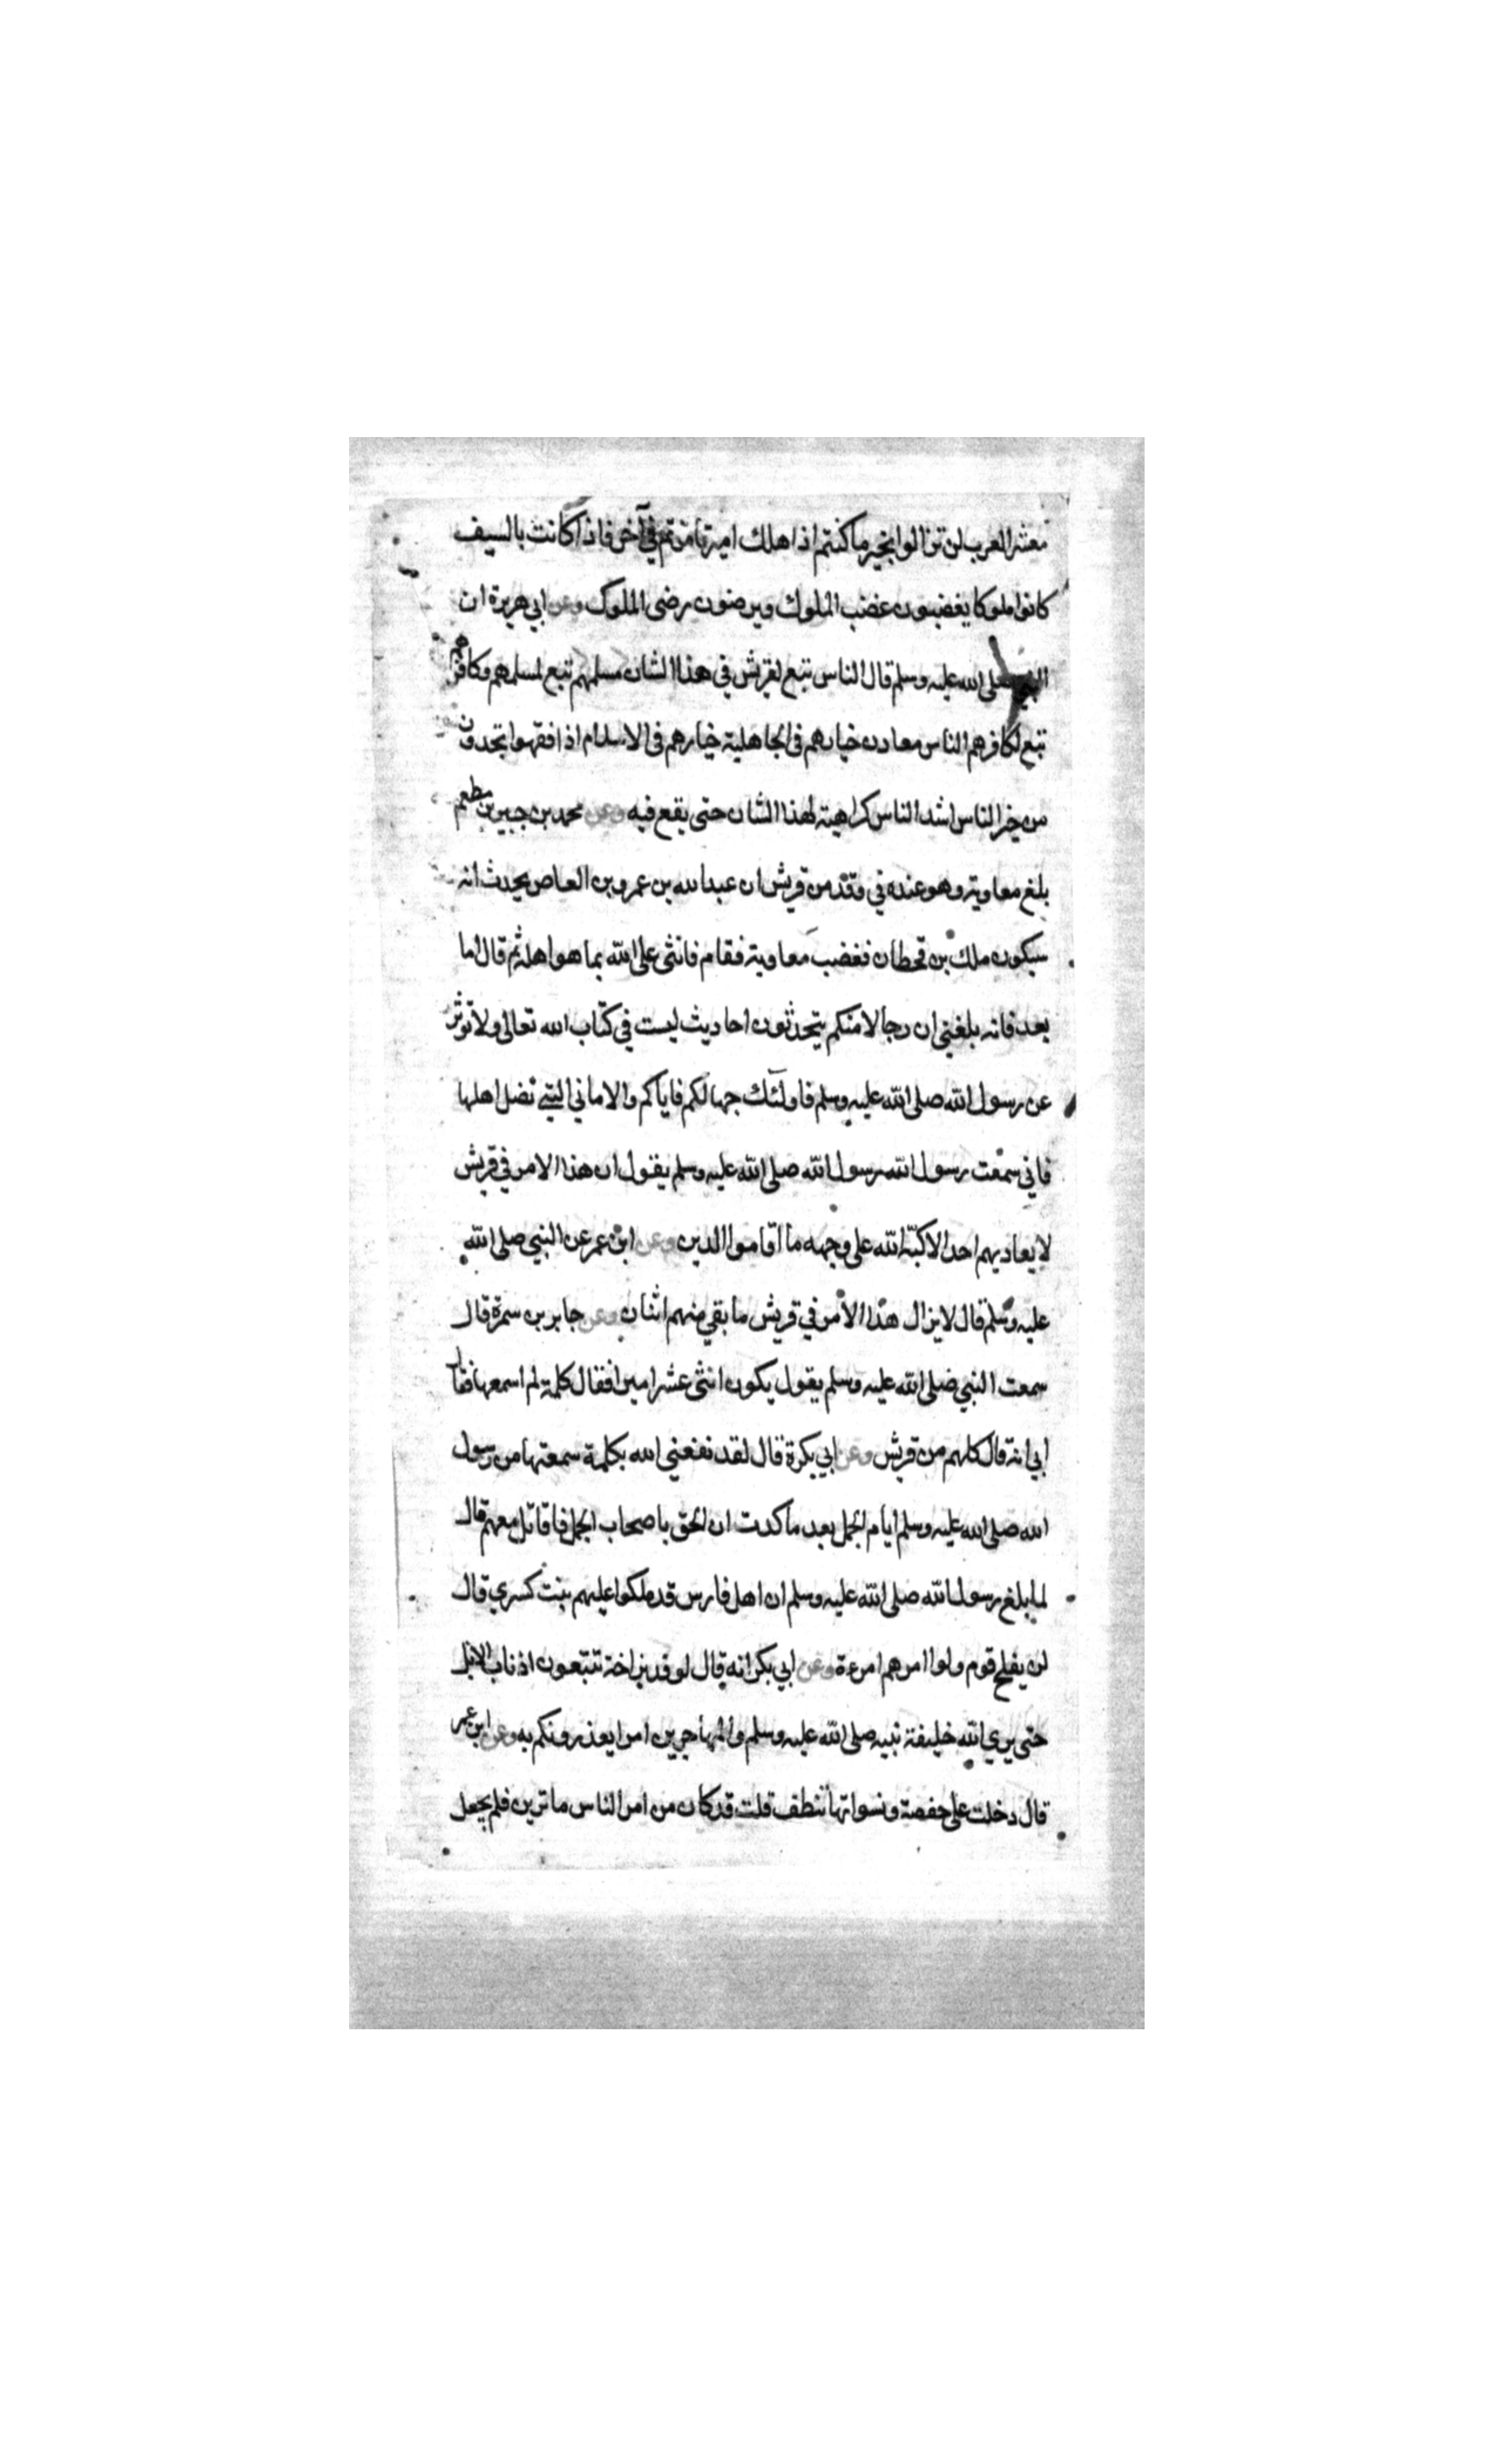 معشر العرب لن تزالوا بخير ما كنتم اذا هلك امير تأمرتم في آخر فاذا كانت بالسيف
كانوا ملوكا يغضبون غضب الملوك ويرضون رضى الملوك وعن ابي هريرة ان
النبي صلى الله عليه وسلم قال الناس تبع لقريش في هذا الشان مسلمهم تبع لمسلمهم وكافرهم
تبع لكافرهم الناس معادن خيارهم في الجاهلية خيارهم في الاسلام اذا فقهوا تجدون
من خير الناس اشد الناس كراهية لهذا الشان حتى يقع فيه وعن محمد بن جبير بن مطعم
بلغ معاوية وهو عنده في وفد من قريش ان عبد الله بن عمرو بن العاص يحدث انه
سيكون ملك بن قحطان فغضب معاوية فقام فاثنى على الله بما هو اهله ثم قال اما
بعد فانه بلغني ان رجالا منكم يتحدثون احاديث ليست في كتاب الله تعالى ولا توثر
عن رسول الله صلى الله عليه وسلم فاولئك جهالكم فاياكم والاماني التي تضل اهلها
فاني سمعت رسول الله رسول الله صلى الله عليه وسلم يقول ان هذا الامر في قريش
لا يعاديهم احد الا كبّه الله على وجهه ما اقاموا الدين وعن ابن عمر عن النبي صلى الله
عليه وسلم قال لا يزال هذا الامر في قريش ما بقي منهم اثنان وعن جابر بن سمرة قال
سمعت النبي صلى الله عليه وسلم يقول يكون اثنى عشر اميرا فقال كلمة لم اسمعها فقال
ابي انه قال كلهم من قريش وعن ابي بكرة قال لقد نفعني الله بكلمة سمعتها من رسول
الله صلى الله عليه وسلم ايام الجمل بعد ما كدت ان الحق باصحاب الجمل فاقاتل معهم قال
لما بلغ رسول الله صلى الله عليه وسلم ان اهل فارس قد ملكوا عليهم بنت كسري قال
لن يفلح قوم ولوا امرهم امرءة وعن ابي بكر انه قال لوفد بزاخة تتبعون اذناب الابل
حتى يري الله خليفة نبيه صلى الله عليه وسلم والمهاجرين امرا يعذرونكم به وعن ابن عمر
قال دخلت على حفصة ونسواتها تنطف قلت قد كان من امر الناس ما ترين فلم يجعل